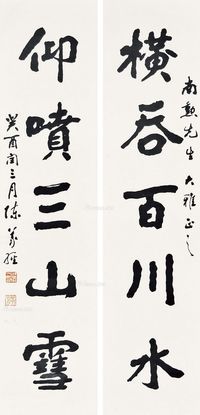 尚勳先生大雅正之
橫吞百川水
仰噴三山雪
癸酉閏三月陳